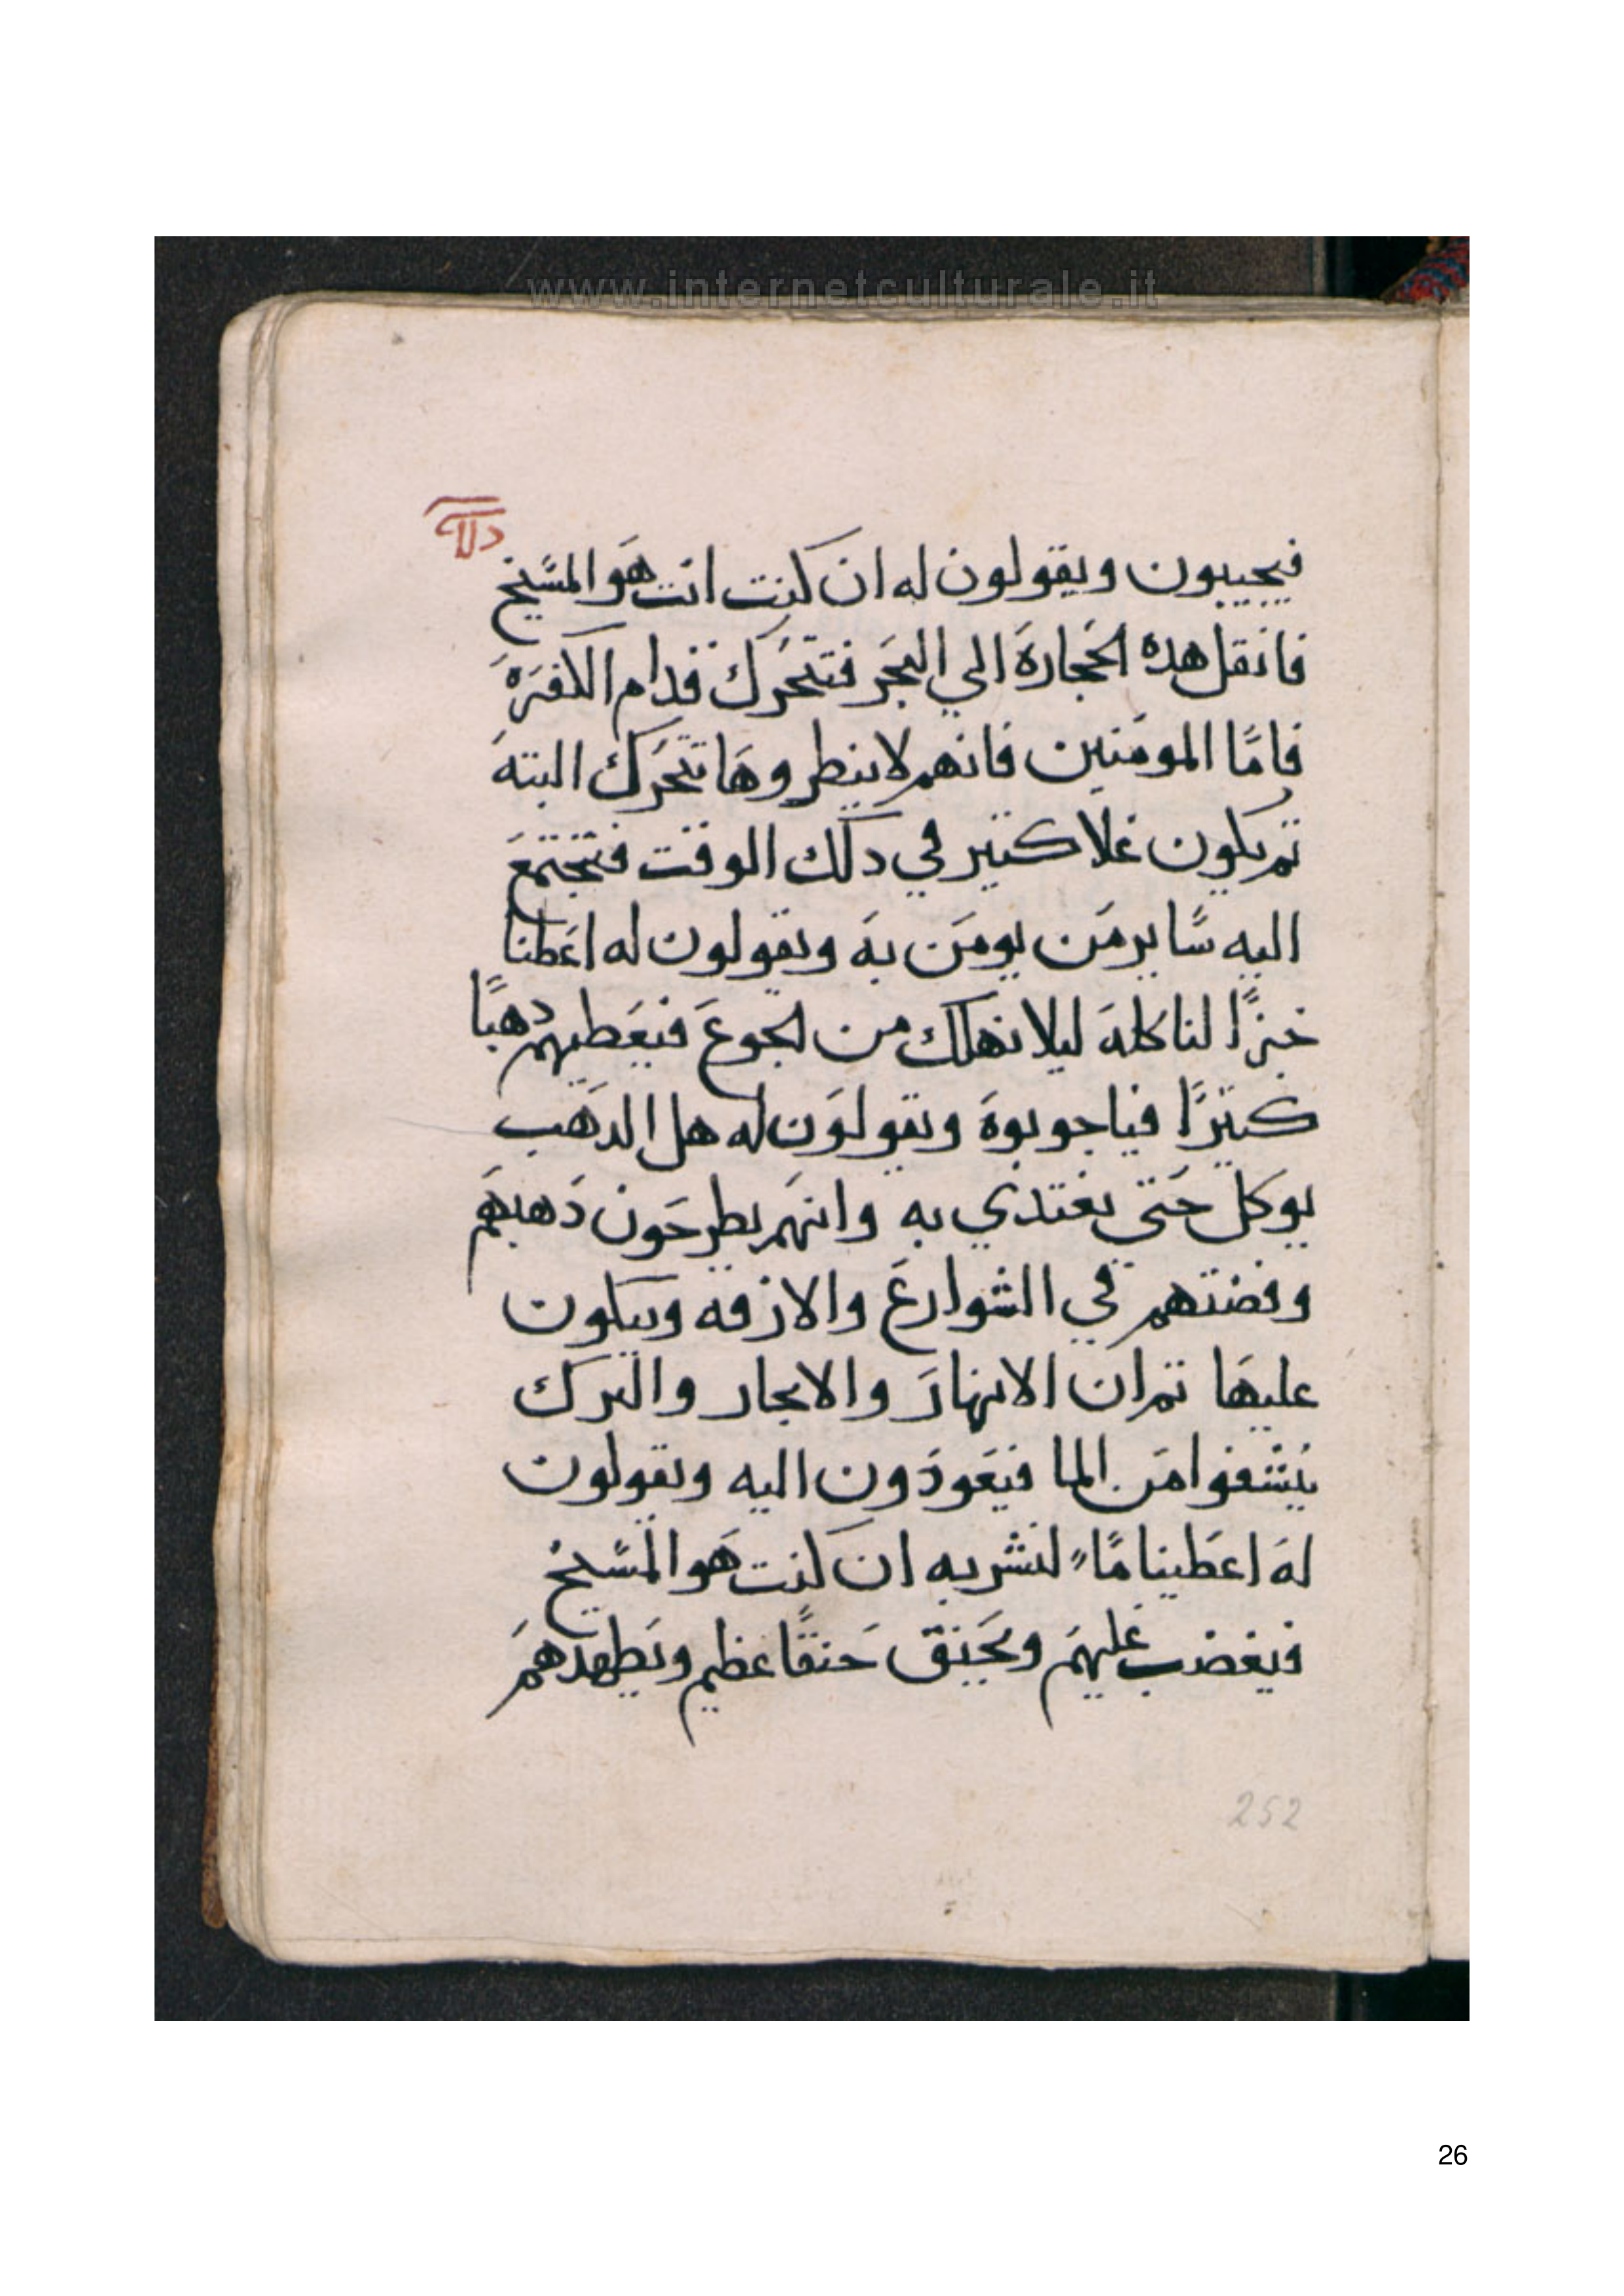 www.internetculturale.it
فيجيبون ويقولون له ان كنت انت هو المسيح
فانقل هده الحجارة الي البحر فتتحرك قدام الكفره
فاما المومنين فانهم لا ينطروها تتحرك البته
تم يكون غلا كتير في دلك الوقت فتجتمع
اليه ساير من يومن به ويقولون له اعطنا
خبزًا لناكله ليلا نهلك من الجوع فيعطيهم دهبًا
كتيرًا فياجوبوة ويقولون له هل الدهب
يوكل حتي يغتدي به وانهم يطرحون دهبهم
وفضتهم في الشوارع والازقه ويبكون
عليها تم ان الانهار والابحار والبرك
ينشفوا من الما فيعودون اليه ويقولون
له اعطينا ماً لنشربه ان كنت هو المسيح
فيغضب عليهم ويحنق حنقًا عظيم ويطهدهم
252
26